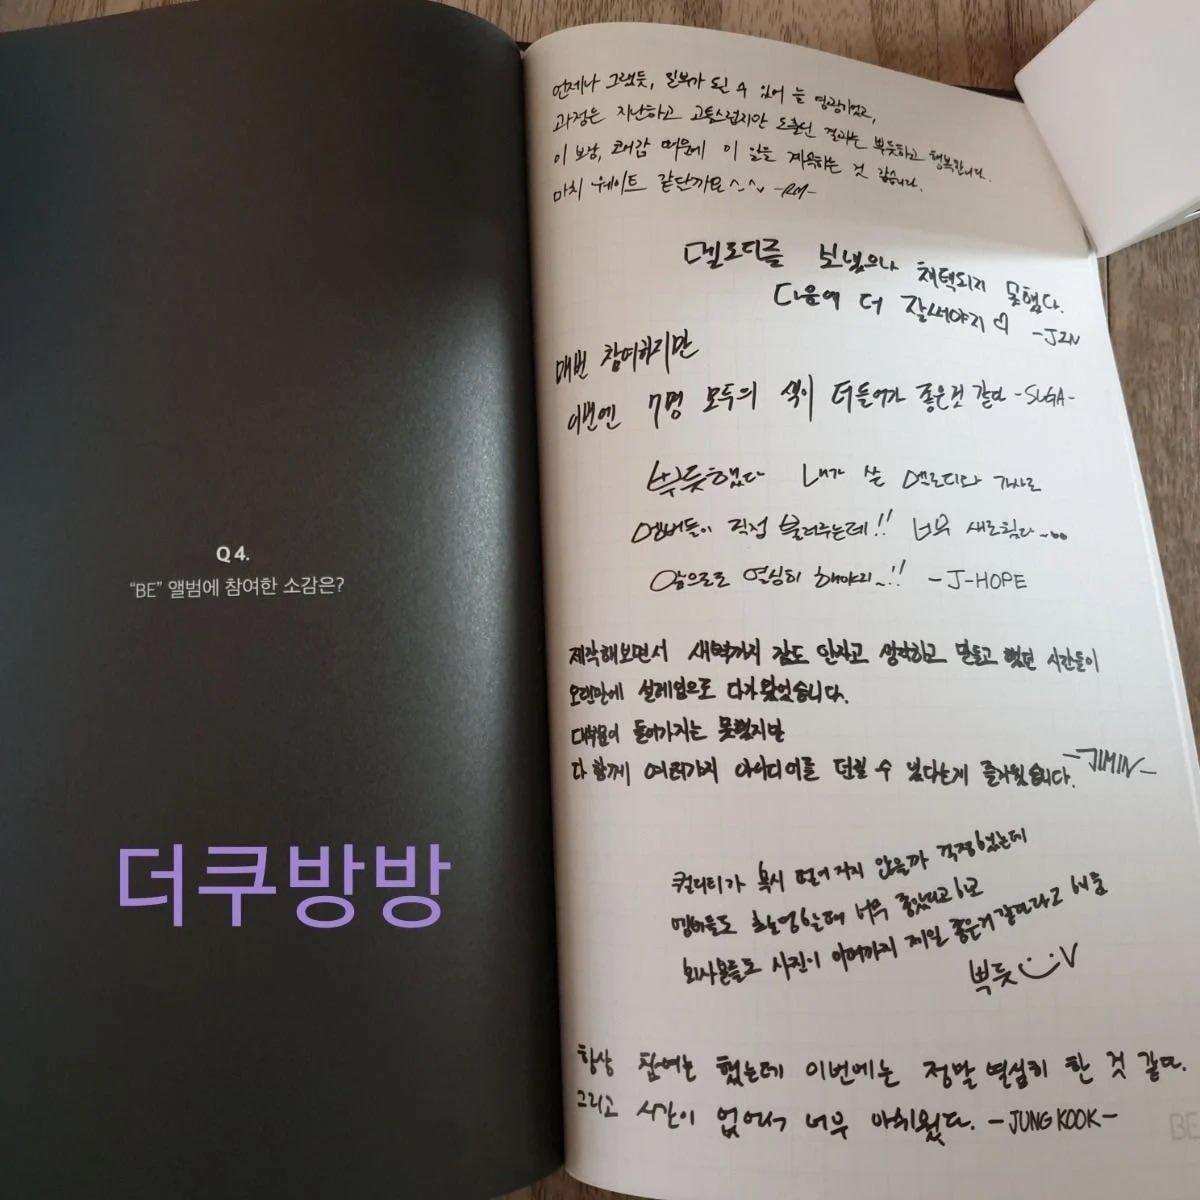 Q 4.
“BE” 앨범에 참여한 소감은?
더쿠방방
언제나 그랬듯, 일부가 될 수 있어 늘 영광이었고,
과정은 지난하고 고통스럽지만 도출된 결과는 뿌듯하고 행복합니다.
이 보람, 쾌감 때문에 이 일을 계속하는 것 같습니다.
마치 웨이트 같달까요^-^ -RM-
멜로디를 보냈으나 채택되지 못했다.
다음에 더 잘써야지♡ -JIN
매번 참여하지만
이번엔 7명 모두의 색이 더들어가 좋은것 같다 -SUGA-
뿌듯했다 내가 쓴 멜로디와 가사로
멤버들이 직접 불러주는데!! 너무 새로웠다~
앞으로도 열심히 해야지~!! -J-HOPE
제작해보면서 새벽까지 잠도 안자고 생각하고 만들고 했던 시간들이
오랜만에 설레임으로 다가왔었습니다.
대부분이 들어가지는 못했지만
다 함께 여러가지 아이디어를 던질 수 있다는게 즐거웠습니다. -JIMIN-
퀄리티가 혹시 떨어지지 않을까 걱정했는데
멤버들도 촬영할때 너무 좋았다고 하고
회사분들도 사진이 이때까지 제일 좋은거 같다라고 해줌
뿌듯 V
항상 참여는 했는데 이번에는 정말 열심히 한 것 같다.
그리고 시간이 없어서 너무 아쉬웠다. -JUNG KOOK-
BE